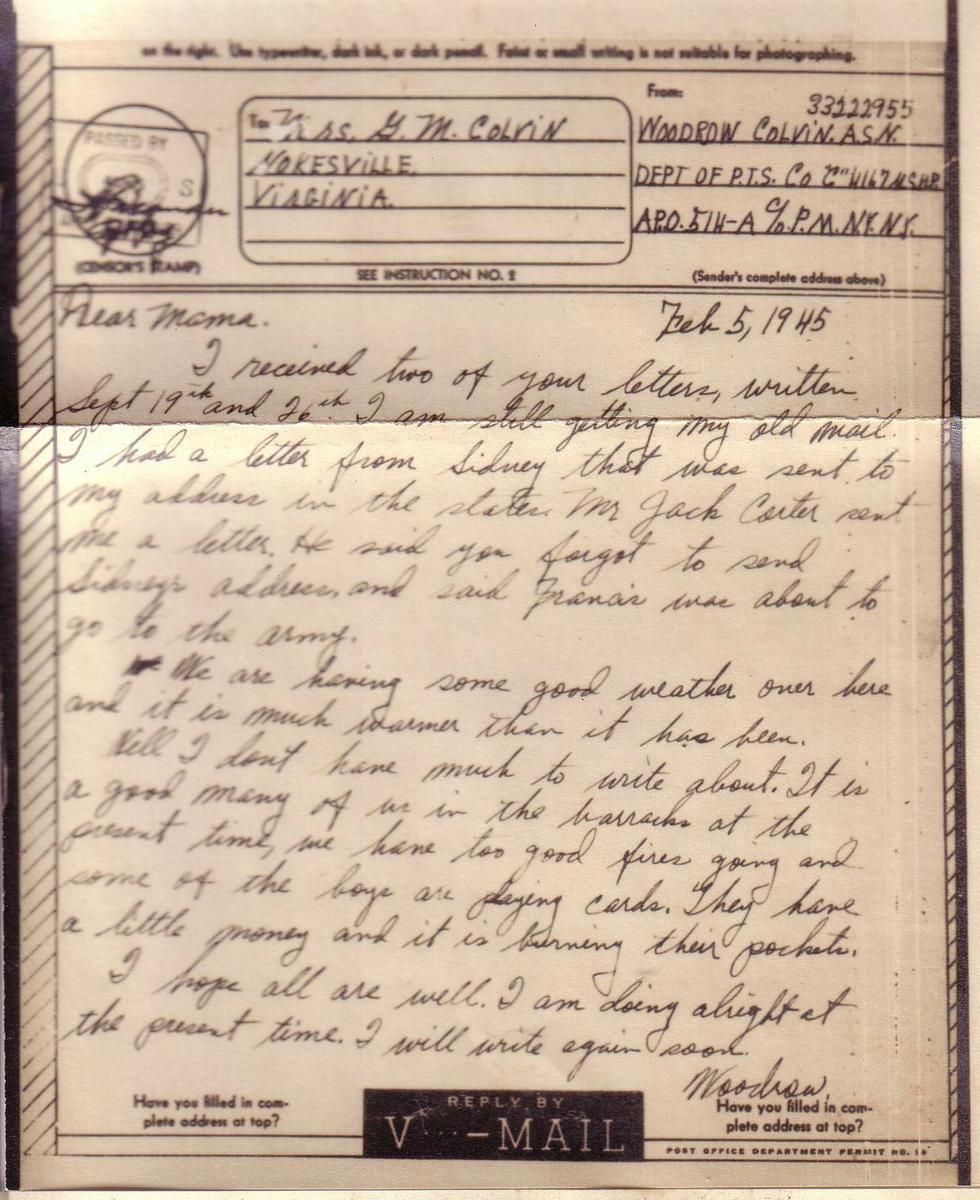 on the right. Use typewriter, dark ink, or dark pencil. Faint or small writing is not suitable for photographing.
From:
33222955
To: Mrs. G. M. COLVIN
WOODROW COLVIN. A.S.N.
PASSED BY
NOKESVILLE.
DEPT OF P.T.S. Co "C" 4167 U.S.H.P.
S
VIRGINIA.
A.P.O. 514-A C/o P.M. N.Y. N.Y.
(CENSOR'S STAMP)
SEE INSTRUCTION NO. 2
(Sender's complete address above)
Dear Mama.
Feb 5, 1945
I received two of your letters, written
Sept 19th and 26th. I am still getting my old mail.
I had a letter from Sidney that was sent to
my address in the states. Mr Jack Corter sent
me a letter. He said you forgot to send
Sidneys address, and said Francis was about to
go to the army.
We are having some good weather over here
and it is much warmer than it has been.
Well I don't have much to write about. It is
a good many of us in the barracks at the
present time, we have too good fires going and
some of the boys are playing cards. They have
a little money and it is burning their pockets.
I hope all are well. I am doing alright at
the present time. I will write again soon.
Woodrow.
Have you filled in com-
plete address at top?
REPLY BY
V···-MAIL
Have you filled in com-
plete address at top?
POST OFFICE DEPARTMENT PERMIT NO.